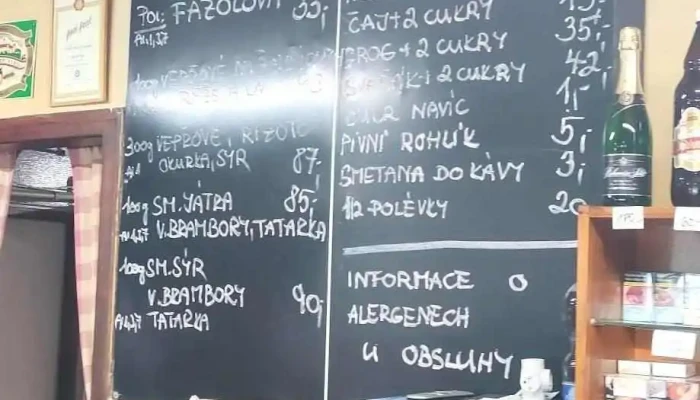 POL: FAZOLOVÁ 35,-
100g VEPŘOVÉ
300g VEPŘOVÉ, RIZOTO
OKURKA, SÝR 87,-
100g SM. JÁTRA 85,-
V. BRAMBORY, TATARKA
100g SM. SÝR
V. BRAMBORY 90,-
TATARKA
ČAJ + 2 CUKRY
GROG + 2 CUKRY 35,-
+ 2 CUKRY 42,-
CUKR NAVÍC 1,-
PIVNÍ ROHLÍK 5,-
SMETANA DO KÁVY 3,-
1/2 POLÉVKY 20
INFORMACE O
ALERGENECH
U OBSLUHY